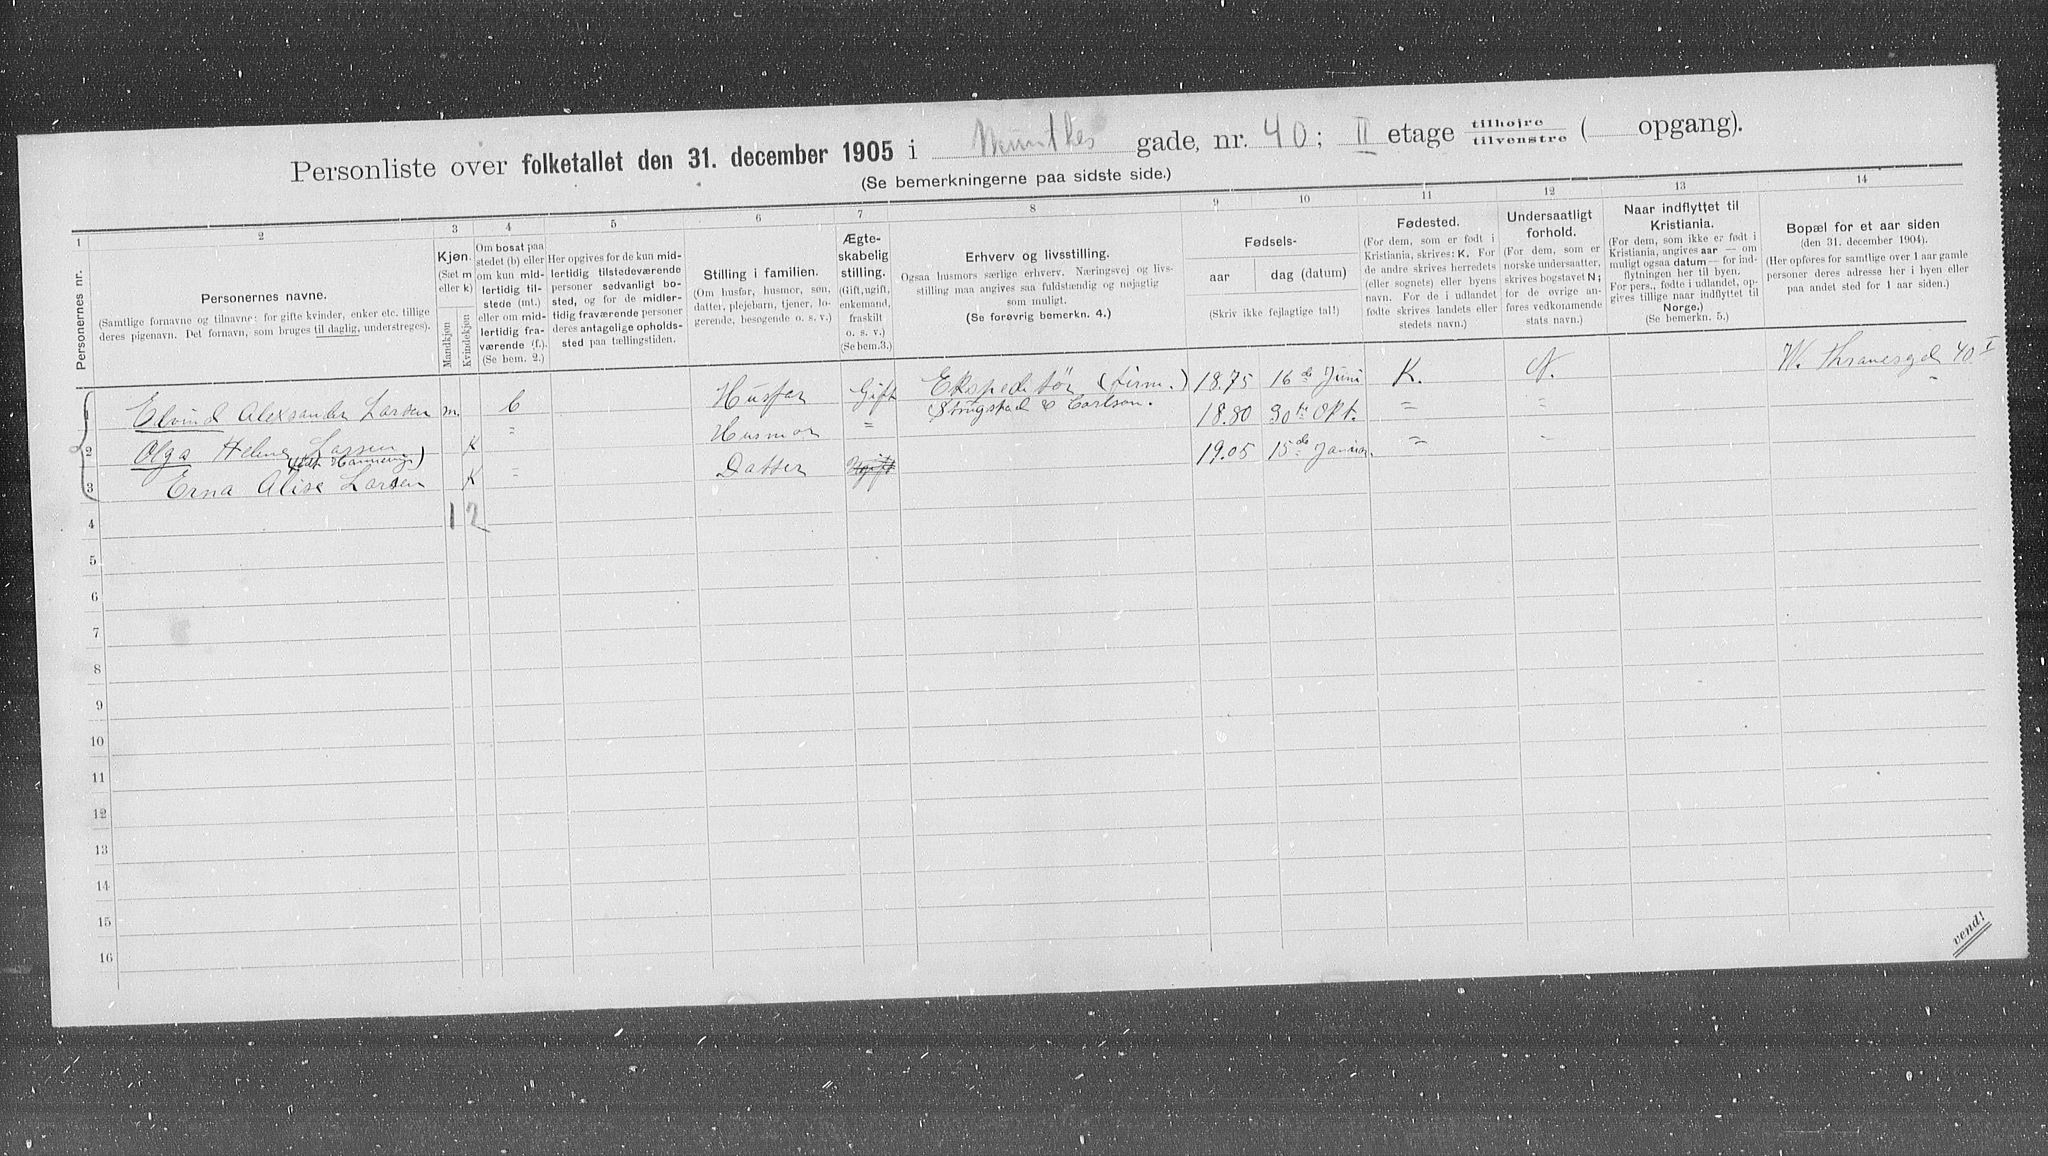 Personliste over folketallet den 31. december 1905 i Munthes gade, nr. 40; II etage tilhøjre / tilvenstre ( opgang).
(Se bemerkningerne paa sidste side.)
1 2 3 4 5 6 7 8 9 10 11 12 13 14
Personernes nr.
Personernes navne.
(Samtlige fornavne og tilnavne; for gifte kvinder, enker etc. tillige
deres pigenavn. Det fornavn, som bruges til daglig, understreges).
Kjøn.
(Sæt m
eller k)
Mandkjøn
Kvindekjøn
Om bosat paa
stedet (b) eller
om kun mid-
lertidig til-
stede (mt.)
eller om mid-
lertidig fra-
værende (f.).
(Se bem. 2.)
Her opgives for de kun mid-
lertidig tilstedeværende
personer sedvanligt bo-
sted, og for de midler-
tidig fraværende personer
deres antagelige opholds-
sted paa tællingstiden.
Stilling i familien.
(Om husfar, husmor, søn,
datter, plejebarn, tjener, lo-
gerende, besøgende o. s. v.)
Ægte-
skabelig
stilling.
(Gift, ugift,
enkemand,
fraskilt
o. s. v.)
(Se bem. 3.)
Erhverv og livsstilling.
Ogsaa husmors særlige erhverv. Næringsvej og livs-
stilling maa angives saa fuldstændig og nøjagtig
som muligt.
(Se forøvrig bemerkn. 4.)
Fødsels-
aar
dag (datum)
(Skriv ikke fejlagtige tal!)
Fødested.
(For dem, som er født i
Kristiania, skrives: K. For
de andre skrives herredets
(eller sognets) eller byens
navn. For de i udlandet
fødte skrives landets eller
stedets navn.)
Undersaatligt
forhold.
(For dem, som er
norske undersaatter,
skrives bogstavet N;
for de øvrige an-
føres vedkommende
stats navn.)
Naar indflyttet til
Kristiania.
(For dem, som ikke er født i
Kristiania, angives aar — om
muligt ogsaa datum — for ind-
flytningen her til byen.
For pers., fødte i udlandet, op-
gives tillige naar indflyttet til
Norge.)
(Se bemerkn. 5.)
Bopæl for et aar siden
(den 31. december 1904).
(Her opføres for samtlige over 1 aar gamle
personer deres adresse her i byen eller
paa andet sted for 1 aar siden.)
1 Eivind Alexsander Larsen m. b Husfar Gift Ekspeditør (firm.) 18.75 16de Juni K. N. W. Thranesgd 40 I
Strugstad & Carlson.
2 Olga Helene Larsen K " Husmor " 18.80 30te Okt. " "
3 Erna Alise Larsen K " Datter Ugift 19.05 15de Januar. " "
4 1 2
5
6
7
8
9
10
11
12
13
14
15
16
vend!